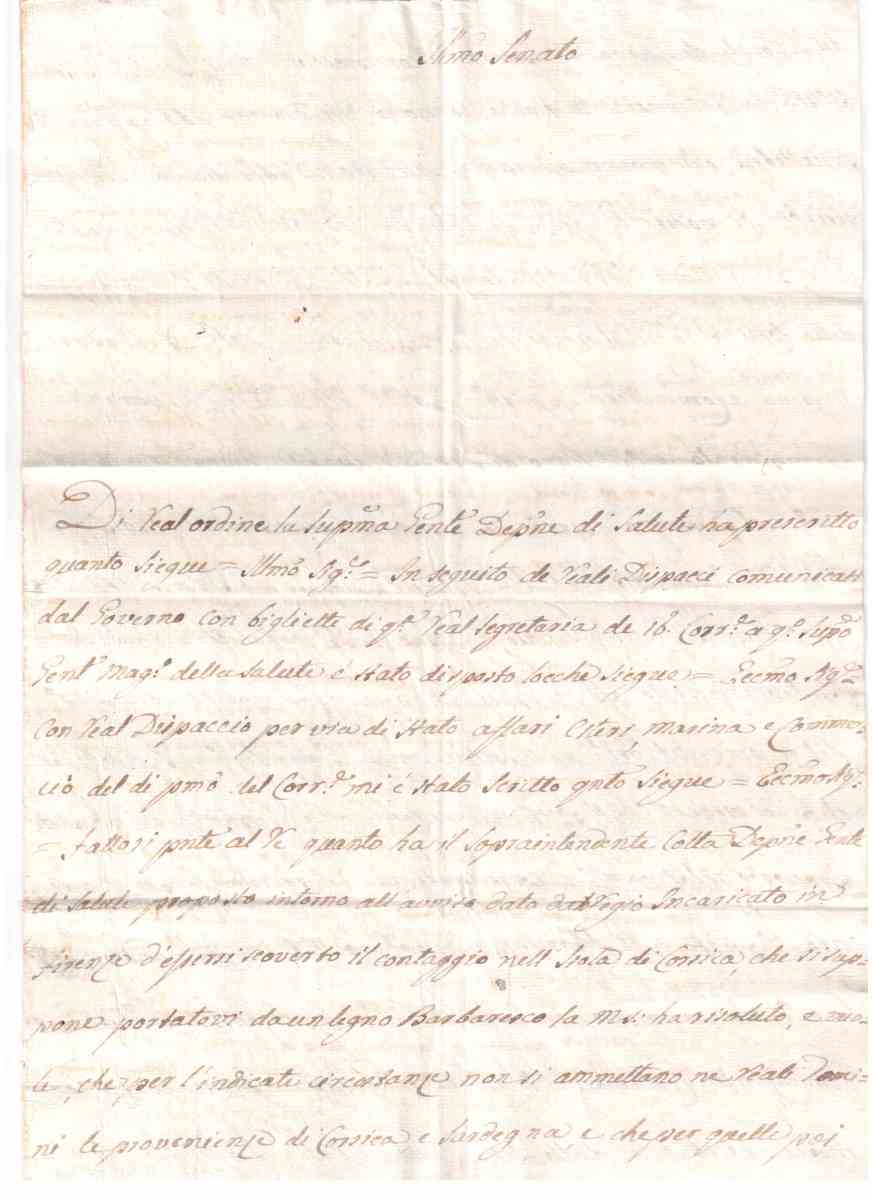 Illmo Senato
Di Real ordine la Supma Gente Depne di Salute ha prescritto
quanto siegue = Illmo Sigre = In seguito de Reali Dispacci comunicati
dal Governo con biglietti di qta Real Segretaria de 18. Corre a qo Supmo
Genle Mago della Salute è stato disposto locche siegue = Eccmo Sigre
Con Real Dispaccio per via di Stato affari Esteri, Marina e Commer-
cio del di pmo del Corre mi è stato scritto qnto siegue = Eccmo Sigre
= Fattosi pnte al Re quanto ha il Sopraintendente colla Depne Gente
di Salute proposto intorno all'avviso dato dal Regio Incaricato in
Firenze d'essersi scoverto il contaggio nell'Isola di Corsica, che si sup-
pone portatovi da un legno Barbaresco la M. S. ha risoluto, e vuo-
le, che per l'indicate circostanze non si ammettano ne Reali Domi-
ni le provenienze di Corsica, e Sardegna e che per quelle poi